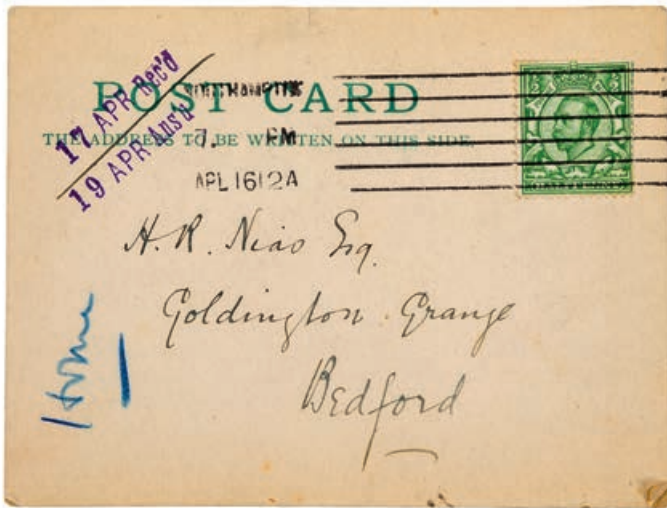 17 APR Rec'd
19 APR Ans'd
POST CARD
THE ADDRESS TO BE WRITTEN ON THIS SIDE.
SOUTHAMPTON
7. PM
APL 16 12 A
H. R. Nias Esq.
Goldington Grange
Bedford
Home
HALFPENNY